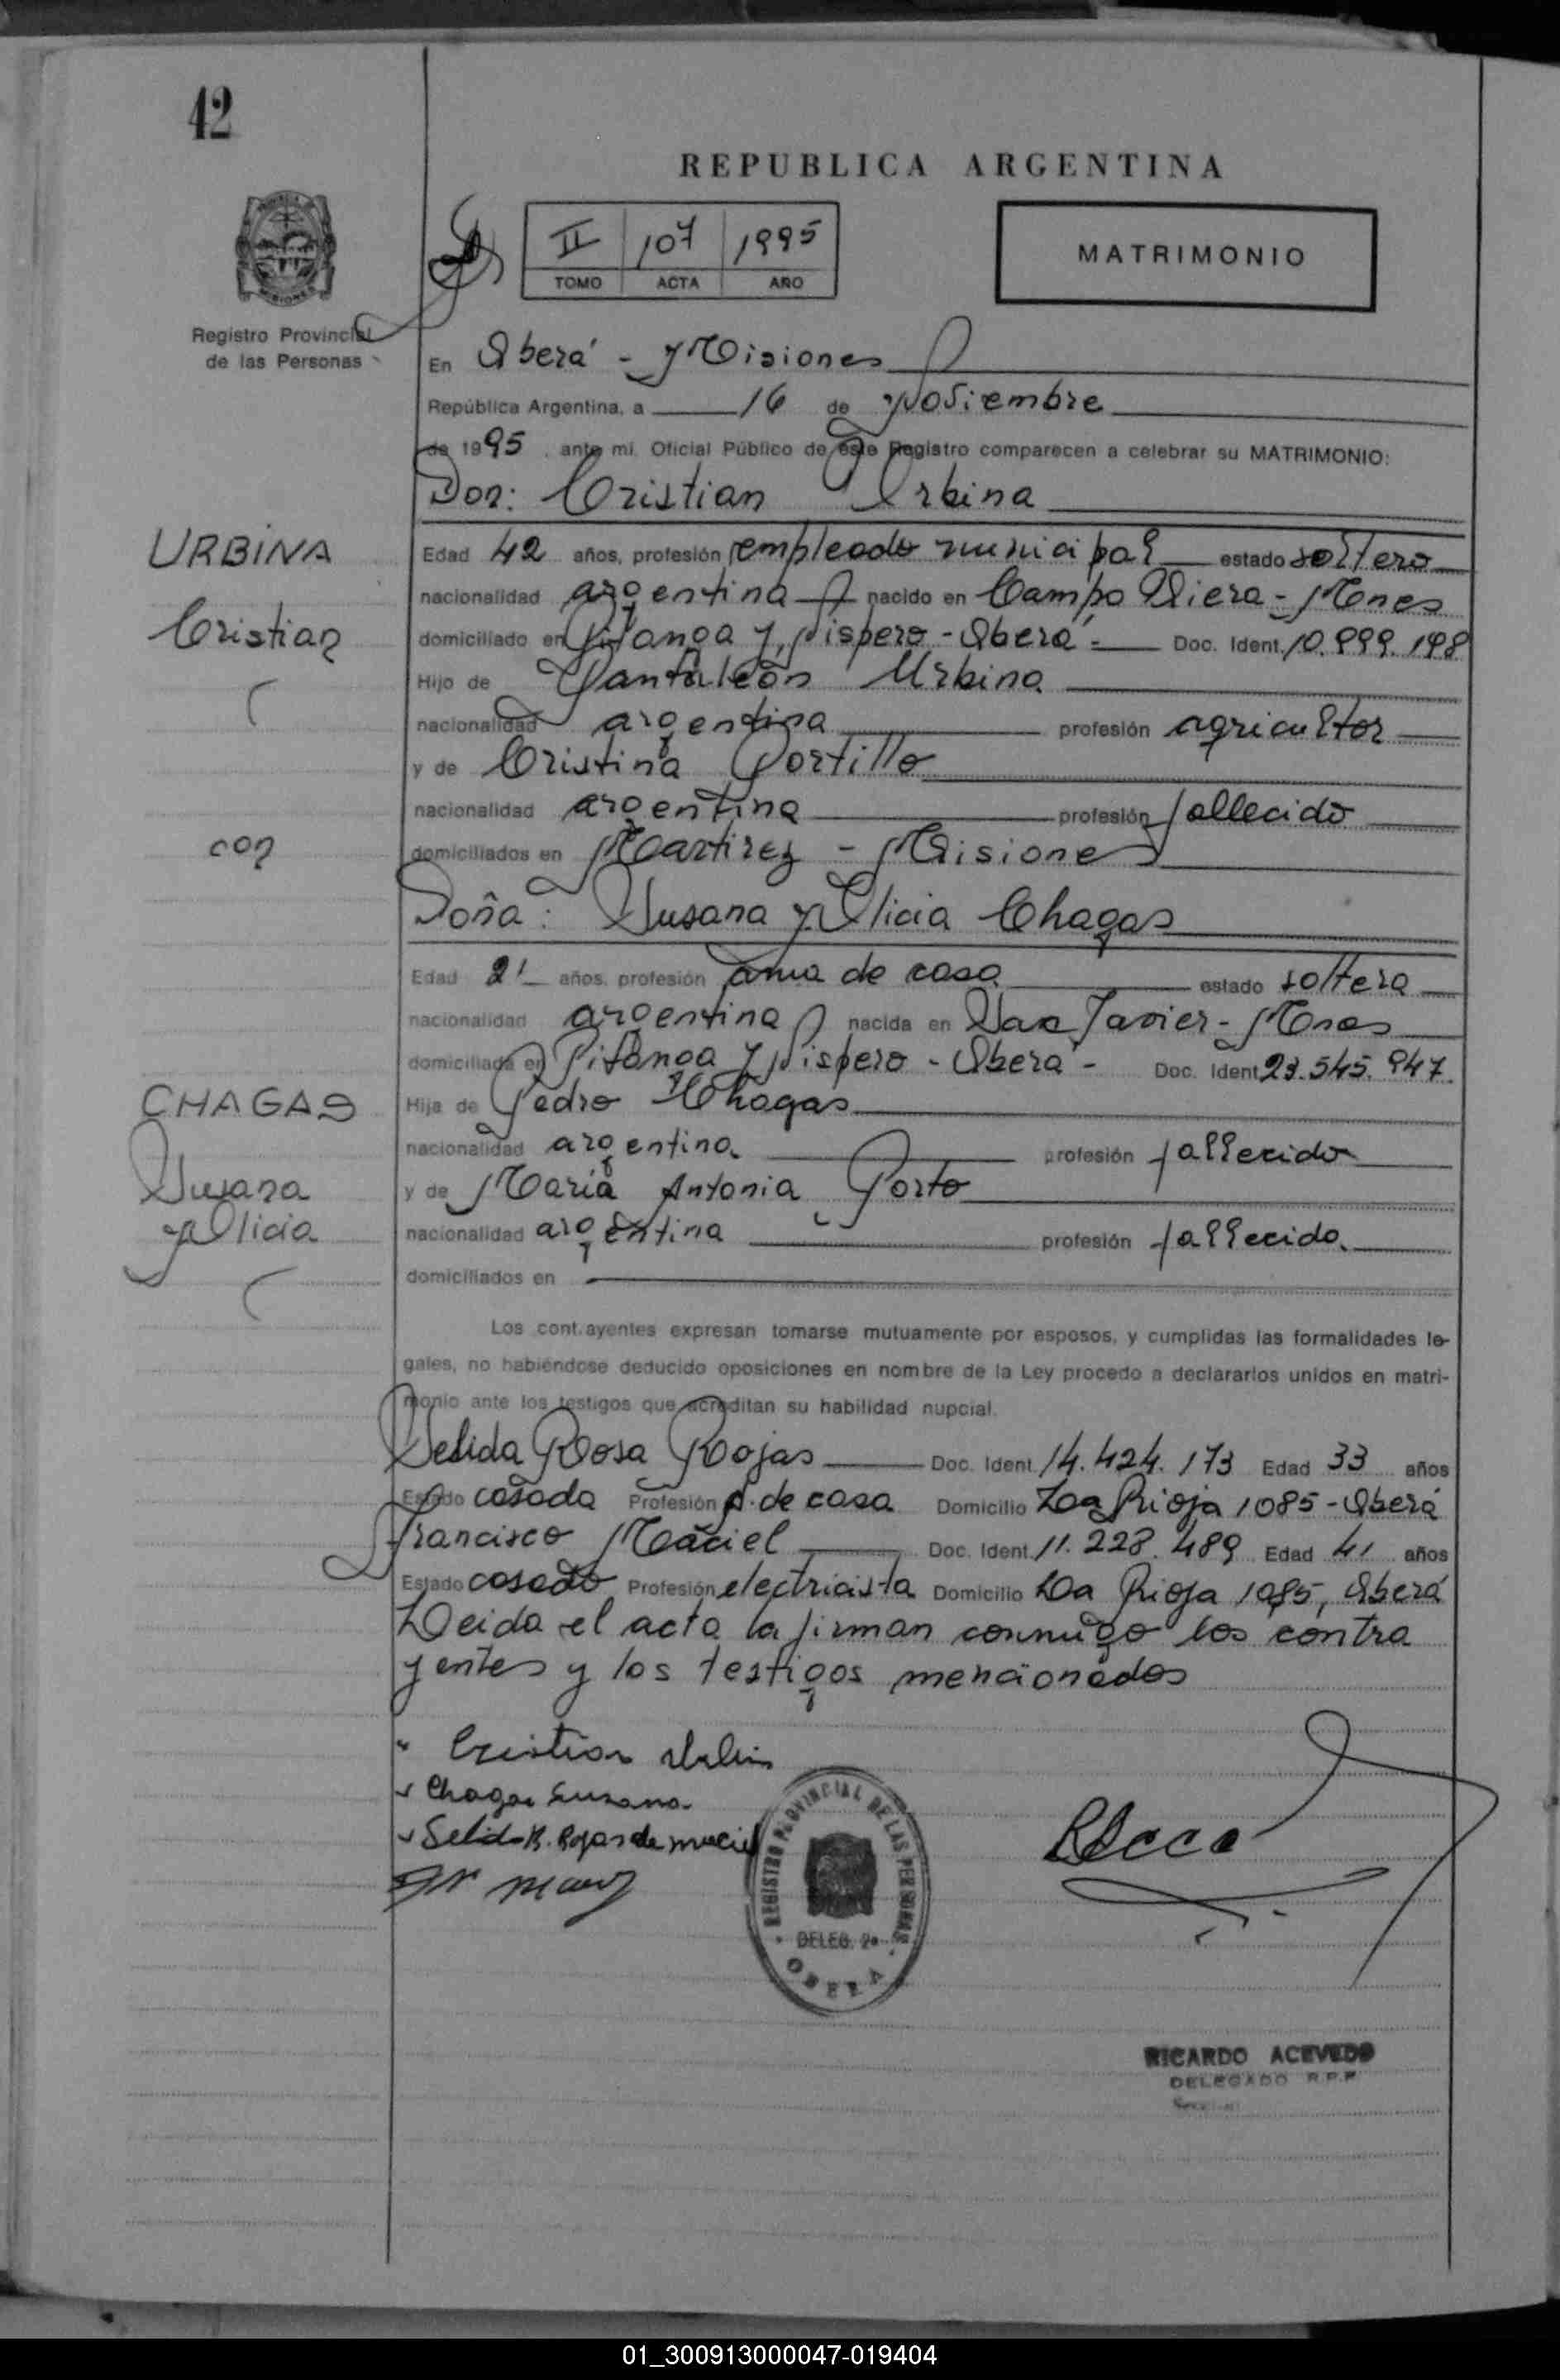 42
REPUBLICA ARGENTINA
II 107 1995
TOMO ACTA AÑO
MATRIMONIO
Registro Provincial
de las Personas
En Oberá - Misiones
República Argentina, a 16 de Noviembre
de 1995, ante mi, Oficial Público de este Registro comparecen a celebrar su MATRIMONIO:
Don: Cristian Urbina
URBINA
Cristian
con
Edad 42 años, profesión empleado municipal estado soltero
nacionalidad argentina nacido en Campo Viera - Mnes
domiciliado en Pitanga y Níspero - Oberá - Doc. Ident. 10.999.198
Hijo de Pantaleón Urbina
nacionalidad argentina profesión agricultor
y de Cristina Portillo
nacionalidad argentina profesión fallecido
domiciliados en Martirez - Misiones
Doña: Susana Alicia Chagas
Edad 21 años, profesión ama de casa estado soltera
nacionalidad argentina nacida en San Javier - Mnes
domiciliada en Pitanga y Níspero - Oberá - Doc. Ident. 23.545.947
CHAGAS
Susana
Alicia
Hija de Pedro Chagas
nacionalidad argentina profesión fallecido
y de María Antonia Porto
nacionalidad argentina profesión fallecida
domiciliados en
Los contrayentes expresan tomarse mutuamente por esposos, y cumplidas las formalidades le-
gales, no habiéndose deducido oposiciones en nombre de la Ley procedo a declararlos unidos en matri-
monio ante los testigos que acreditan su habilidad nupcial.
Selida Rosa Rojas Doc. Ident. 14.424.173 Edad 33 años
Estado casada Profesión a. de casa Domicilio La Rioja 1085 - Oberá
Francisco Maciel Doc. Ident. 11.228.489 Edad 41 años
Estado casado Profesión electricista Domicilio La Rioja 1085, Oberá
Leida el acta la firman conmigo los contra
yentes y los testigos mencionados
Cristian Urbin
Chagas Susana
Selida R. Rojas de Maciel
REGISTRO PROVINCIAL DE LAS PERSONAS
DELEG. 2a
OBERA
RICARDO ACEVEDO
DELEGADO R.P.P.
01_300913000047-019404